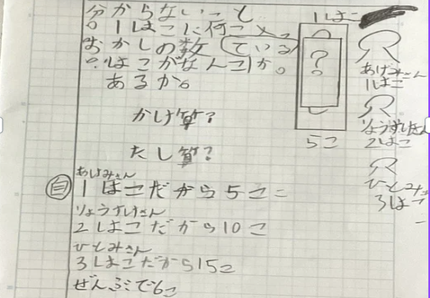 分からないこと
。1はこに何こ入っ
おかしの数 ている
?はこがなんこか。
あるか。
かけ算?
たし算?
あけみさん
自 1はこだから5こ
りょうすけさん
2はこだから10こ
ひとみさん
3はこだから15こ
ぜんぶで6こ
1はこ
?
5こ
あけみさん
1はこ
りょうすけさん
2はこ
ひとみさん
3はこ